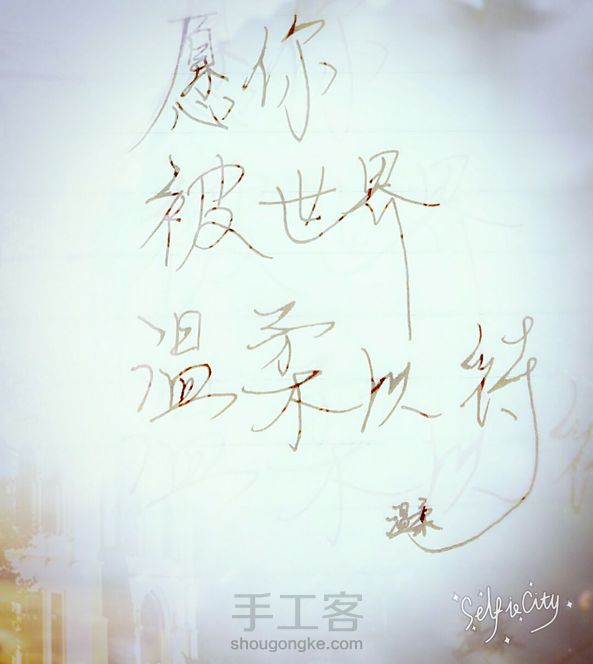 愿你
被世界
温柔以待
温柔
Selfie City
手工客
shougongke.com